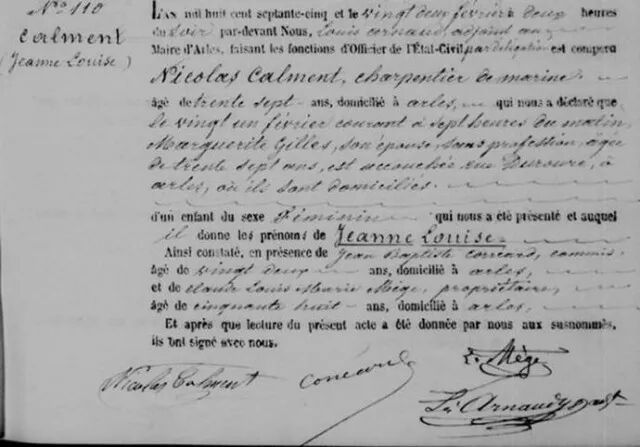 N° 110
Calment
(Jeanne Louise)
L'AN mil huit cent septante-cinq et le vingt deux février à deux heures
du soir par-devant Nous, Louis adjoint au
Maire d'Arles, faisant les fonctions d'Officier de l'État-Civil par délégation est comparu
Nicolas Calment, charpentier de marine
âgé de trente sept ans, domicilié à arles, qui nous a déclaré que
le vingt un février courant à sept heures du matin,
Marguerite Gilles, son épouse, sans profession, agée
de trente sept ans, est accouchée rue Duroure, à
arles, où ils sont domiciliés.
d'un enfant du sexe féminin qui nous a été présenté et auquel
il donne les prénoms de Jeanne Louise
Ainsi constaté, en présence de Jean Baptiste commis
âgé de vingt deux ans, domicilié à arles,
et de Louis Marie Mège, propriétaire,
âgé de cinquante huit ans, domicilié à arles,
Et après que lecture du présent acte a été donnée par nous aux susnommés,
ils ont signé avec nous.
L. Mège
Nicolas Calment